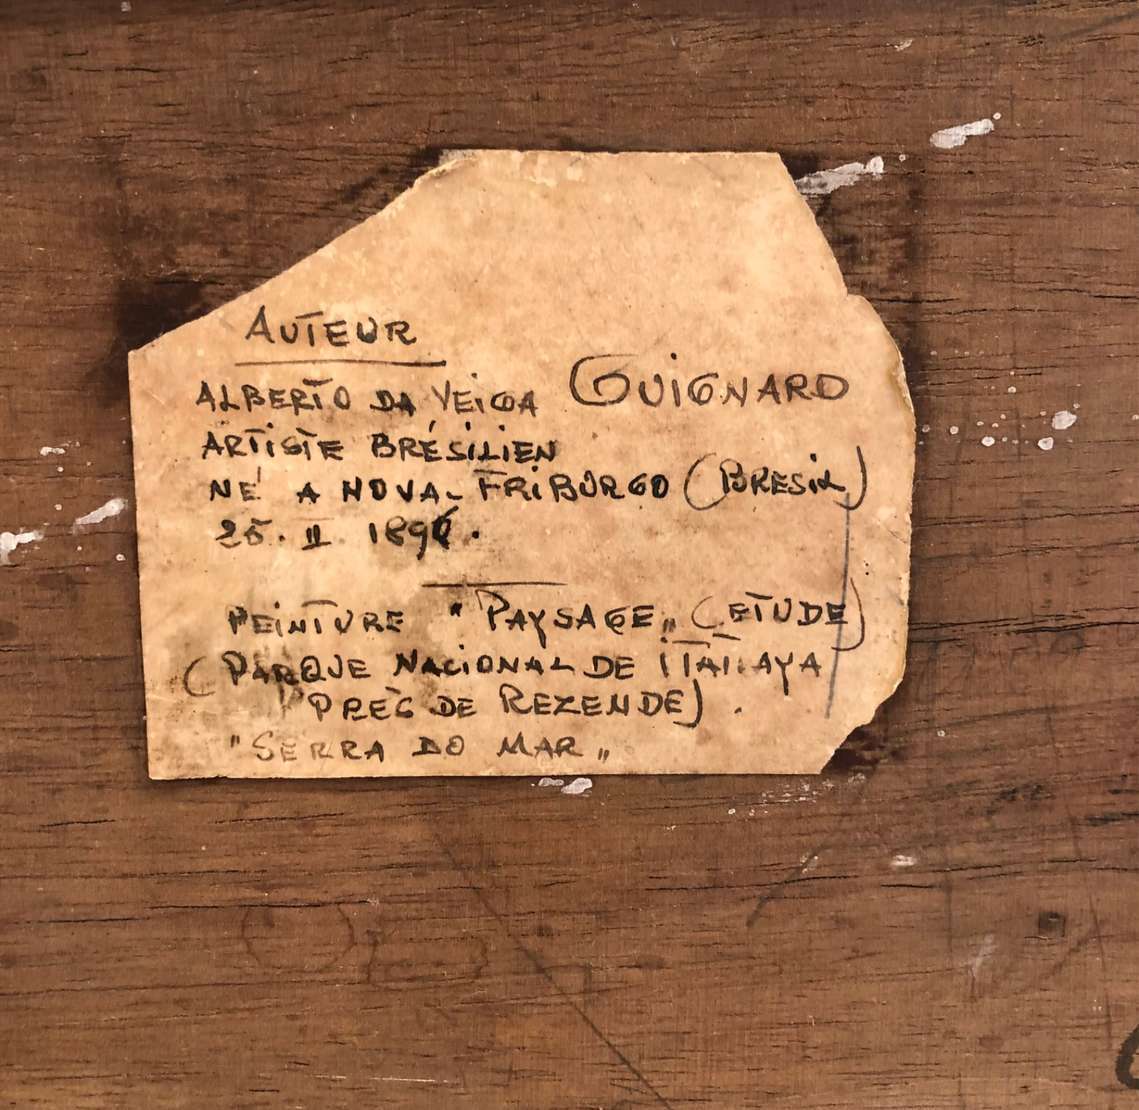 AUTEUR
ALBERTO DA VEIGA GUIGNARD
ARTISTE BRÉSILIEN
NÉ A NOVA-FRIBURGO (BRESIL)
25. II. 1896.
PEINTURE "PAYSAGE" (ETUDE)
(PARQUE NACIONAL DE ITATIAYA
PRÈS DE REZENDE).
"SERRA DO MAR"